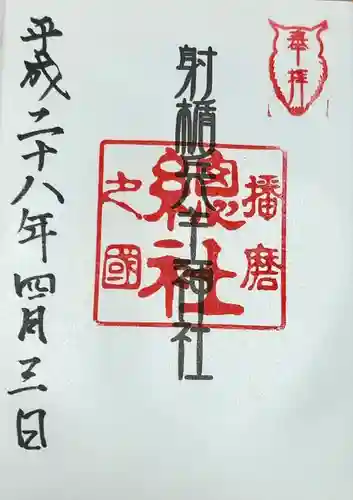 奉拝
射楯兵主神社
播磨
總社
之國
平成二十八年四月三日